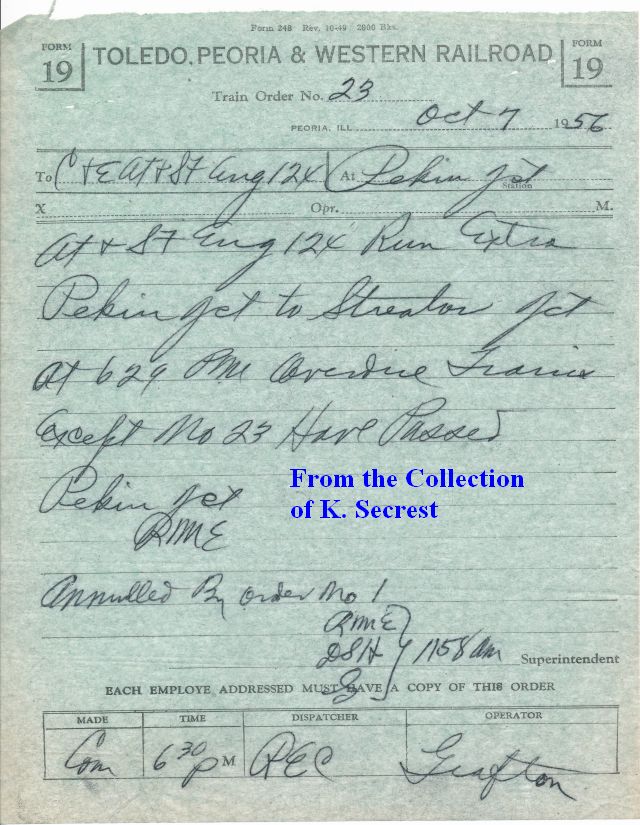 Form 248 Rev. 10-49 2000 Bks.
FORM 19 TOLEDO, PEORIA & WESTERN RAILROAD FORM 19
Train Order No. 23
PEORIA, ILL. Oct 7 1956
To C & E AT & SF Eng 124 At Pekin Jct
Station
X Opr. M.
AT & SF Eng 124 Run Extra
Pekin Jct to Streator Jct
At 629 PM Overdue Trains
Except No 23 Have Passed
Pekin Jct
RME
From the Collection
of K. Secrest
Annulled By order No 1
RME
DSH 1158 am Superintendent
EACH EMPLOYE ADDRESSED MUST HAVE A COPY OF THIS ORDER
MADE TIME DISPATCHER OPERATOR
Com 6 30 P M REC Grafton